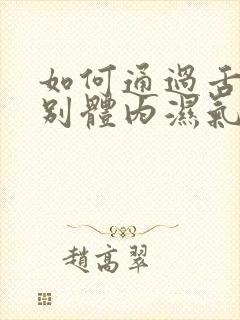 如何通過舌
別體內濕氣
趙高翠